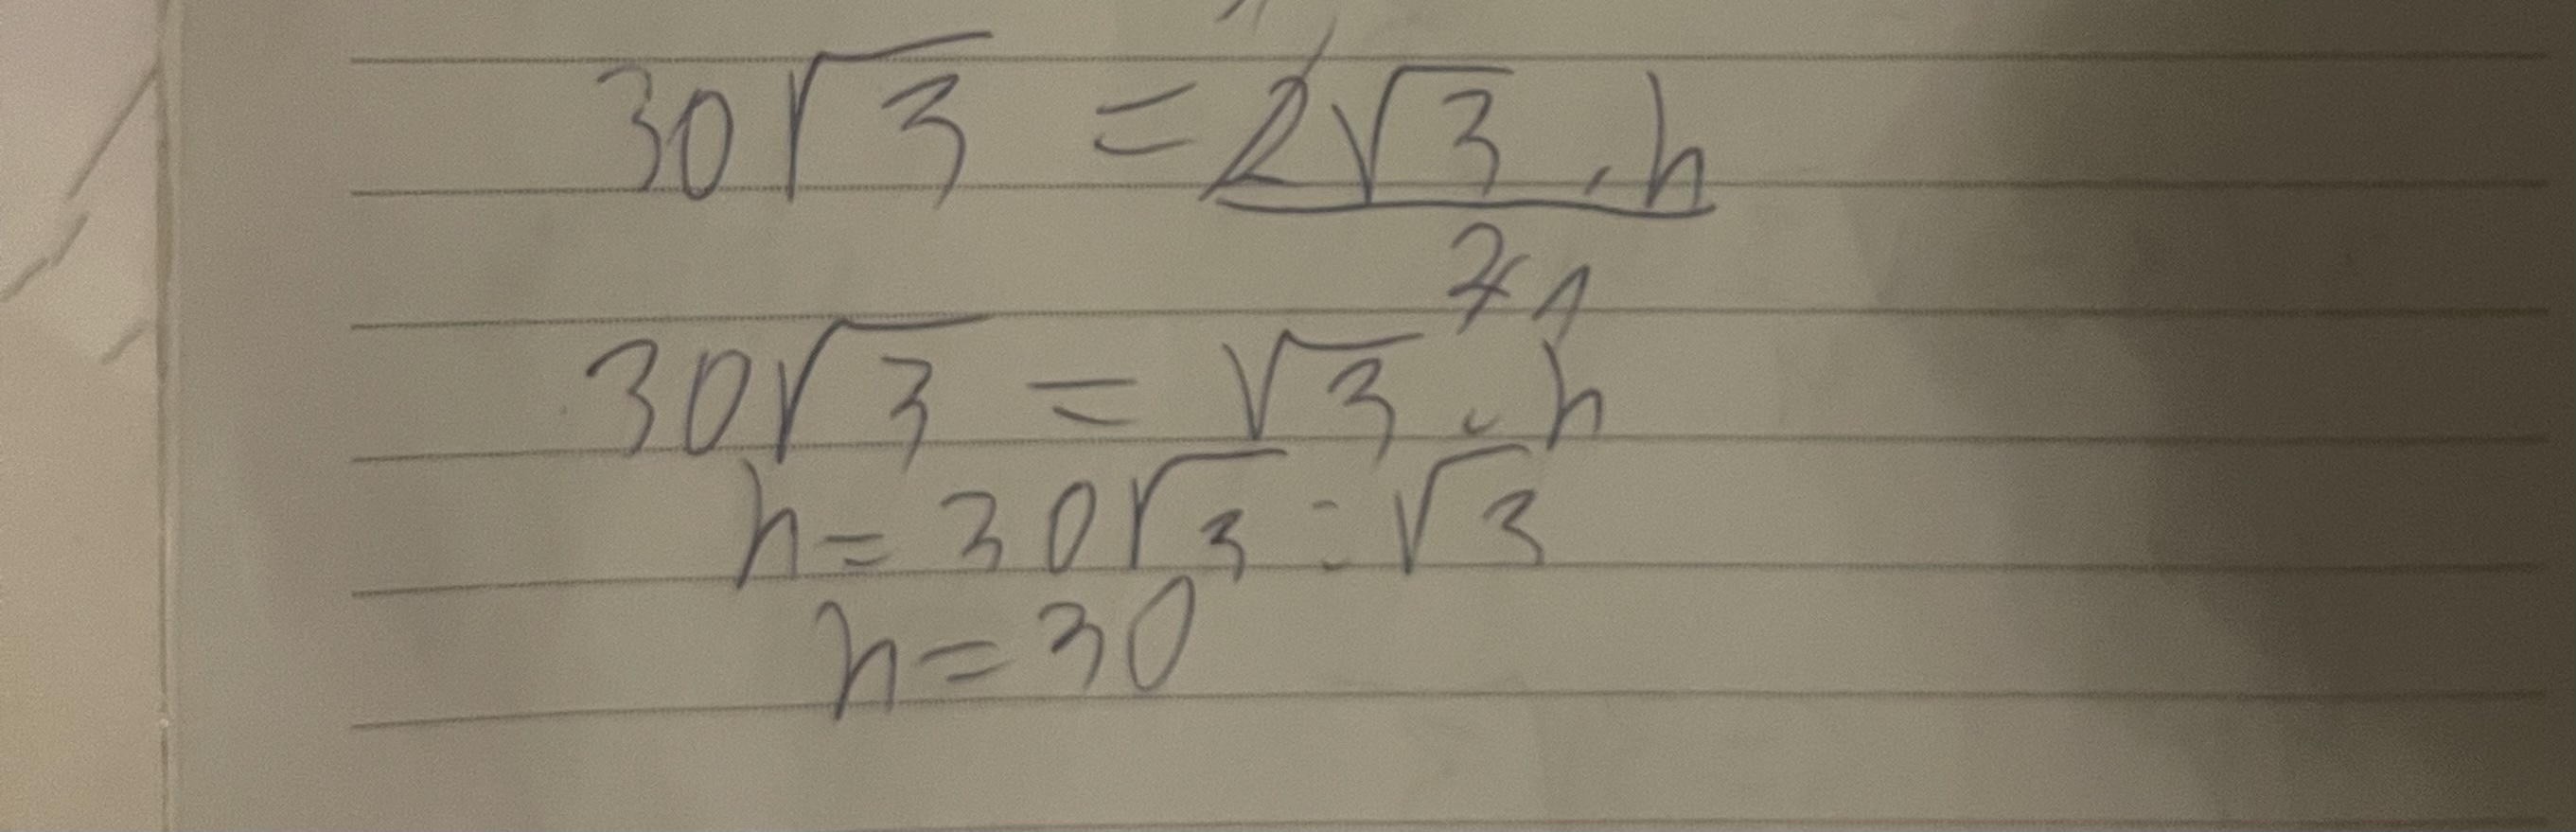 30√3 = 2√3 · h
2 1
30√3 = √3 · h
h = 30√3 : √3
h = 30